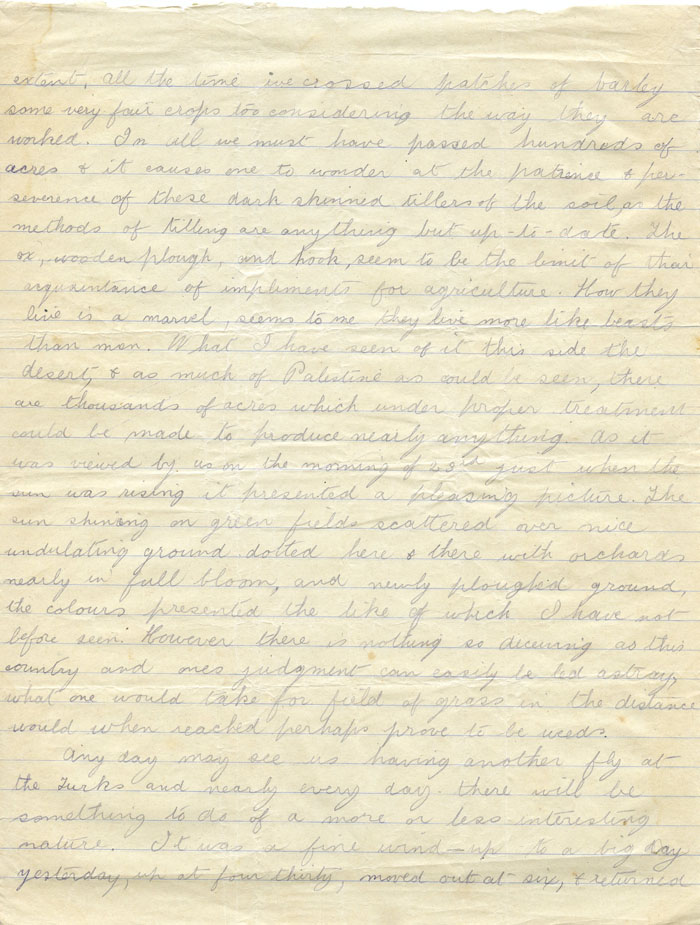 extent. All the time we crossed patches of barley
some very fair crops too considering the way they are
worked. In all we must have passed hundreds of
acres & it causes one to wonder at the patience & per-
severence of these dark skinned tillers of the soil, as the
methods of tilling are anything but up-to-date. The
ox, wooden plough, and hook, seem to be the limit of their
aquaintance of impliments for agriculture. How they
live is a marvel, seems to me they live more like beasts
than men. What I have seen of it this side the
desert, & as much of Palestine as could be seen, there
are thousands of acres which under proper treatment
could be made to produce nearly anything. As it
was viewed by us on the morning of 23rd just when the
sun was rising it presented a pleasing picture. The
sun shining on green fields scattered over nice
undulating ground dotted here & there with orchards
nearly in full bloom, and newly plough'd ground,
the colours presented the like of which I have not
before seen. However there is nothing so deceiving as this
country and ones judgment can easily be led astray,
what one would take for field of grass in the distance
would when reached perhaps prove to be weeds.
Any day may see us having another fly at
the Turks and nearly every day there will be
something to do of a more or less interesting
nature. It was a fine wind-up to a big day
yesterday, up at four thirty, moved out at six, & returned